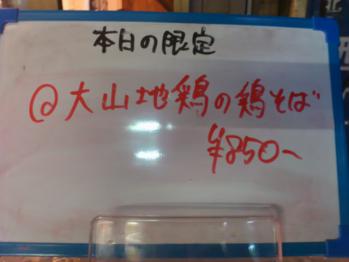 本日の限定
@大山地鶏の鶏そば
¥850~
北